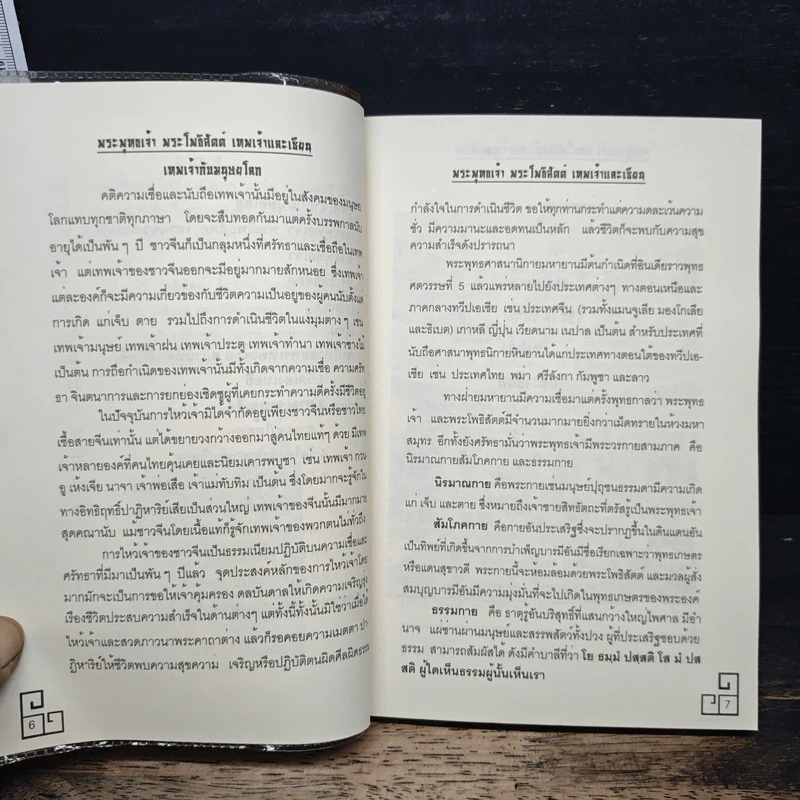 พระพุทธเจ้า พระโพธิสัตต์ เทพเจ้าและเซียน
เทพเจ้ากับมนุษยโลก
คติความเชื่อและนับถือเทพเจ้านั้นมีอยู่ในสังคมของมนุษย
โลกแทบทุกชาติทุกภาษา โดยจะสืบทอดกันมาแต่ครั้งบรรพกาลนับ
อายุได้เป็นพัน ๆ ปี ชาวจีนก็เป็นกลุ่มหนึ่งที่ศรัทธาและเชื่อถือในเทพ
เจ้า แต่เทพเจ้าของชาวจีนออกจะมีอยู่มากมายสักหน่อย ซึ่งเทพเจ้า
แต่ละองค์ก็จะมีความเกี่ยวข้องกับชีวิตความเป็นอยู่ของผู้คนนับตั้งแต่
การเกิด แก่เจ็บ ตาย รวมไปถึงการดำเนินชีวิตในแง่มุมต่าง ๆ เช่น
เทพเจ้ามนุษย์ เทพเจ้าฝน เทพเจ้าประตู เทพเจ้าทำนา เทพเจ้าช่างไม้
เป็นต้น การถือกำเนิดของเทพเจ้านั้นมีทั้งเกิดจากความเชื่อ ความศรัท
ธา จินตนาการ และการยกย่องเชิดชูผู้ที่เคยกระทำความดีครั้งมีชีวิตอยู่
ในปัจจุบันการไหว้เจ้ามิได้จำกัดอยู่เพียงชาวจีนหรือชาวไทย
เชื้อสายจีนเท่านั้น แต่ได้ขยายวงกว้างออกมาสู่คนไทยแท้ๆ ด้วย มีเทพ
เจ้าหลายองค์ที่คนไทยคุ้นเคยและนิยมเคารพบูชา เช่น เทพเจ้า กวน
อู เห้งเจีย นาจา เจ้าพ่อเสือ เจ้าแม่ทับทิม เป็นต้น ซึ่งโดยมากจะรู้จักใน
ทางอิทธิฤทธิ์ปาฏิหาริย์เสียเป็นส่วนใหญ่ เทพเจ้าของจีนนั้นมีมากมาย
สุดคณานับ แม้ชาวจีนโดยเนื้อแท้ก็รู้จักเทพเจ้าของพวกตนไม่ทั่วถึง
การไหว้เจ้าของชาวจีนเป็นธรรมเนียมปฏิบัติบนความเชื่อและ
ศรัทธาที่มีมาเป็นพัน ๆ ปีแล้ว จุดประสงค์หลักของการไหว้เจ้าโดย
มากมักจะเป็นการขอให้เจ้าคุ้มครอง ดลบันดาลให้เกิดความเจริญรุ่ง
เรืองชีวิตประสบความสำเร็จในด้านต่างๆ แต่ทั้งนี้ทั้งนั้นมิใช่ว่าเมื่อได้
ไหว้เจ้าและสวดภาวนาพระคาถาต่าง แล้วก็รอคอยความเมตตา ปา
ฏิหาริย์ให้ชีวิตพบความสุขความ เจริญหรือปฏิบัติตนผิดศีลผิดธรรม
6
พระพุทธเจ้า พระโพธิสัตต์ เทพเจ้าและเซียน
กำลังใจในการดำเนินชีวิต ขอให้ทุกท่านกระทำแต่ความดละเว้นความ
ชั่ว มีความมานะและอดทนเป็นหลัก แล้วชีวิตก็จะพบกับความสุข
ความสำเร็จดังปรารถนา
พระพุทธศาสนานิกายมหายานมีต้นกำเนิดที่อินเดียราวพุทธ
ศตวรรษที่ 5 แล้วแพร่หลายไปยังประเทศต่างๆ ทางตอนเหนือและ
ภาคกลางทวีปเอเชีย เช่น ประเทศจีน (รวมทั้งแมนจูเลีย มองโกเลีย
และธิเบต) เกาหลี ญี่ปุ่น เวียดนาม เนปาล เป็นต้น สำหรับประเทศที่
นับถือศาสนาพุทธนิกายหินยานได้แก่ประเทศทางตอนใต้ของทวีปเอ-
เชีย เช่น ประเทศไทย พม่า ศรีลังกา กัมพูชา และลาว
ทางฝ่ายมหายานมีความเชื่อมาแต่ครั้งพุทธกาลว่า พระพุทธ
เจ้า และพระโพธิสัตต์มีจำนวนมากมายยิ่งกว่าเม็ดทรายในห้วงมหา
สมุทร อีกทั้งยังศรัทธามั่นว่าพระพุทธเจ้ามีพระวรกายสามภาค คือ
นิรมาณกายสัมโภคกาย และธรรมกาย
นิรมาณกาย คือพระกายเช่นมนุษย์ปุถุชนธรรมดามีความเกิด
แก่ เจ็บ และตาย ซึ่งหมายถึงเจ้าชายสิทธัตถะที่ตรัสรู้เป็นพระพุทธเจ้า
สัมโภคกาย คือกายอันประเสริฐซึ่งจะปรากฏขึ้นในดินแดนอัน
เป็นทิพย์ที่เกิดขึ้นจากการบำเพ็ญบารมีอันมีชื่อเรียกเฉพาะว่าพุทธเกษตร
หรือแดนสุขาวดี พระกายนี้จะห้อมล้อมด้วยพระโพธิสัตต์ และมวลผู้สั่ง
สมบุญบารมีอันมีความมุ่งมั่นที่จะไปเกิดในพุทธเกษตรของพระองค์
ธรรมกาย คือ ธาตุรู้อันบริสุทธิ์ที่แสนกว้างใหญ่ไพศาล มีอำ
นาจ แผ่ซ่านผ่านมนุษย์และสรรพสัตว์ทั้งปวง ผู้ที่ประเสริฐชอบด้วย
ธรรม สามารถสัมผัสได้ ดังมีคำบาลีที่ว่า โย ธมฺมํ ปสฺสติ โส มํ ปส
สติ ผู้ใดเห็นธรรมผู้นั้นเห็นเรา
7